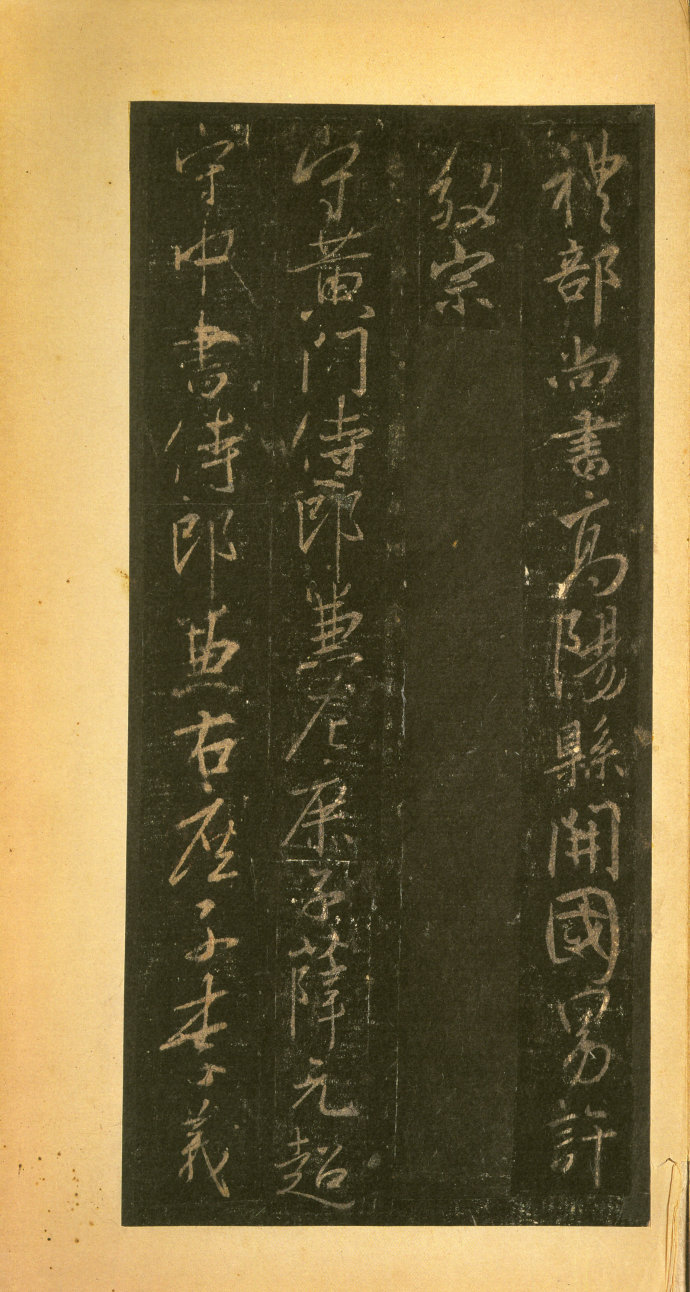 禮部尚書高陽縣開國男許
敬宗
守黃門侍郎兼左庶子薛元超
守中書侍郎兼右庶子李義